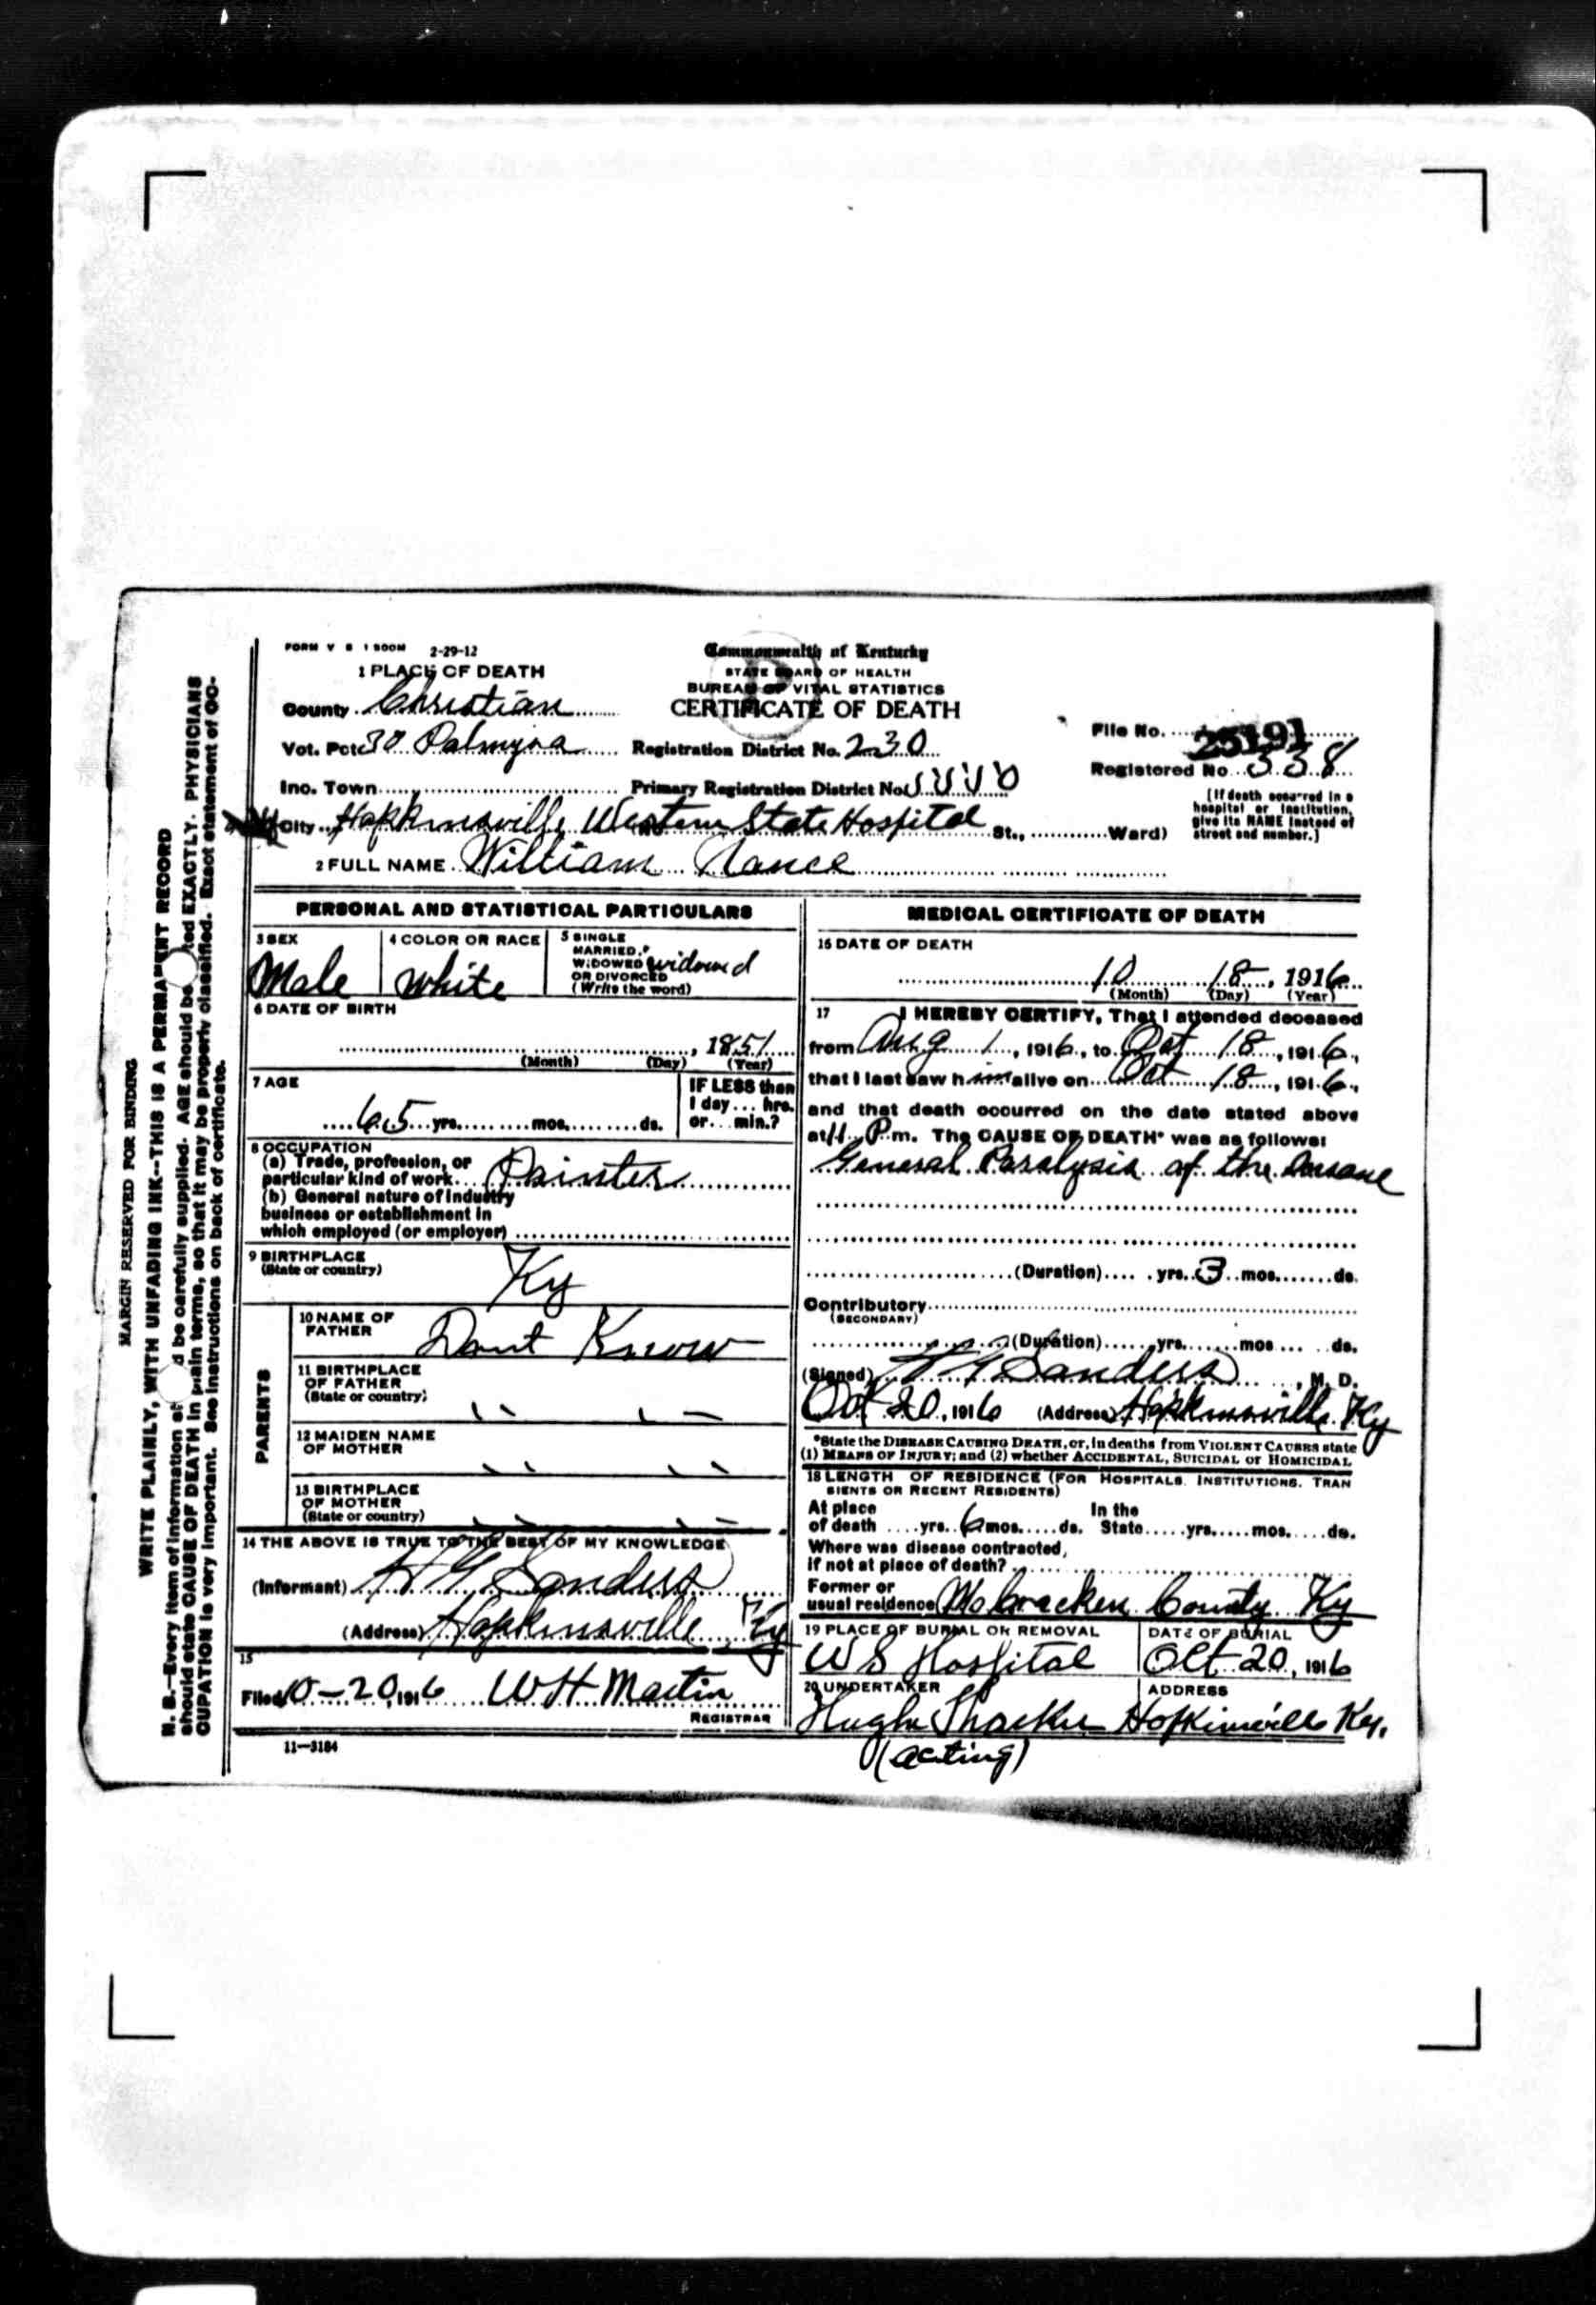 FORM V S 1 500M 2-29-12
Commonwealth of Kentucky
STATE BOARD OF HEALTH
BUREAU OF VITAL STATISTICS
CERTIFICATE OF DEATH
1 PLACE OF DEATH
County Christian
Vot. Pct 30 Palmyra Registration District No. 230
File No. 25191
Inc. Town Primary Registration District No.
Registered No 338
City Hopkinsville Western State Hospital St., Ward)
[If death occurred in a
hospital or institution,
give its NAME instead of
street and number.]
2 FULL NAME William Nance
PERSONAL AND STATISTICAL PARTICULARS
3 SEX
Male
4 COLOR OR RACE
White
5 SINGLE
MARRIED,
WIDOWED widowed
OR DIVORCED
(Write the word)
6 DATE OF BIRTH
, 1851
(Month) (Day) (Year)
7 AGE
65 yrs. mos. ds.
IF LESS than
1 day... hrs.
or... min.?
8 OCCUPATION
(a) Trade, profession, or
particular kind of work Painter
(b) General nature of industry
business or establishment in
which employed (or employer)
9 BIRTHPLACE
(State or country)
Ky
PARENTS
10 NAME OF
FATHER
Dont Know
11 BIRTHPLACE
OF FATHER
(State or country)
" "
12 MAIDEN NAME
OF MOTHER
" "
13 BIRTHPLACE
OF MOTHER
(State or country)
" "
14 THE ABOVE IS TRUE TO THE BEST OF MY KNOWLEDGE
(Informant) H G Sanders
(Address) Hopkinsville Ky
15
Filed 10-20, 1916 W H Martin
REGISTRAR
11-3184
MEDICAL CERTIFICATE OF DEATH
16 DATE OF DEATH
10 18, 1916
(Month) (Day) (Year)
17 I HEREBY CERTIFY, That I attended deceased
from Aug 1, 1916, to Oct 18, 1916,
that I last saw him alive on Oct 18, 1916,
and that death occurred on the date stated above
at 11 P m. The CAUSE OF DEATH* was as follows:
General Paralysis of the Insane
(Duration) yrs. 3 mos. ds.
Contributory
(SECONDARY)
(Duration) yrs. mos ds.
(Signed) H G Sanders, M. D.
Oct 20, 1916 (Address) Hopkinsville Ky
*State the DISEASE CAUSING DEATH, or, in deaths from VIOLENT CAUSES state
(1) MEANS OF INJURY; and (2) whether ACCIDENTAL, SUICIDAL or HOMICIDAL
18 LENGTH OF RESIDENCE (FOR HOSPITALS, INSTITUTIONS, TRAN
SIENTS OR RECENT RESIDENTS)
At place In the
of death yrs. 6 mos. ds. State yrs. mos. ds.
Where was disease contracted,
if not at place of death?
Former or
usual residence McCracken County Ky
19 PLACE OF BURIAL OR REMOVAL
W S Hospital
DATE OF BURIAL
Oct 20, 1916
20 UNDERTAKER
Hugh Thacker
(acting)
ADDRESS
Hopkinsville Ky.
MARGIN RESERVED FOR BINDING
WRITE PLAINLY, WITH UNFADING INK--THIS IS A PERMANENT RECORD
N. B.—Every item of information should be carefully supplied. AGE should be stated EXACTLY. PHYSICIANS
should state CAUSE OF DEATH in plain terms, so that it may be properly classified. Exact statement of OC-
CUPATION is very important. See instructions on back of certificate.